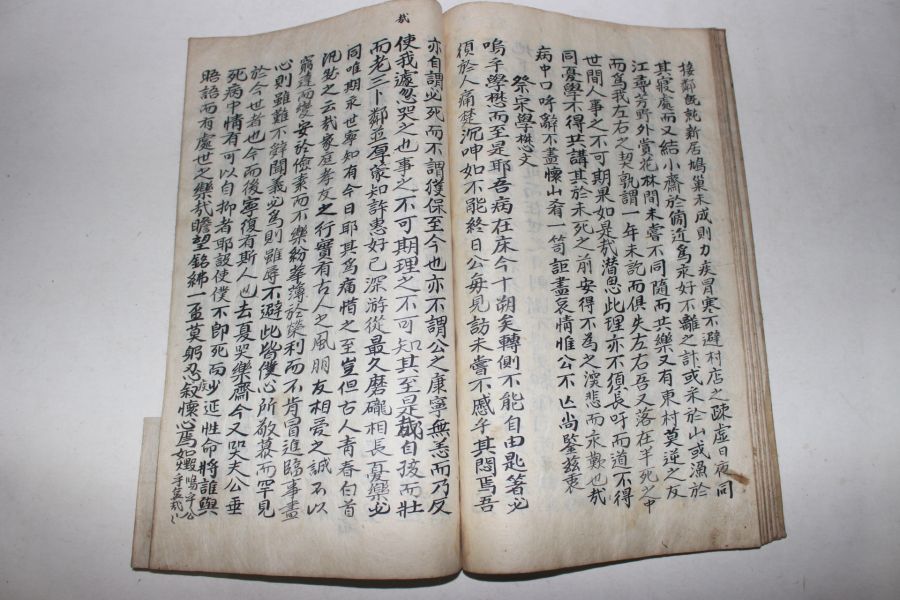 接鄰旣新居鳩巢未成則力疾冒寒不避村店之踈虛日夜同
其寢處而又結小齋於備近爲永好不離之計或采於山或漁於
江尋芳野外賞花林間未嘗不同隨而共樂又有東村莫逆之友
而爲我左右之契孰謂一年未訖而俱失左右吾又落在半死之中
世間人事之不可期果如是哉潛思此理亦不須長吁而道不得
同憂學不得共講其於未死之前安得不爲之深悲而永歎也哉
病中口呼辭不盡懷山肴一笥詎盡哀情惟公不亡尙鑒玆衷
祭宋學懋文
嗚乎學懋而至是耶吾病在床今十朔矣轉側不能自由匙箸必
須於人痛楚沉呻如不能終日公每見訪未嘗不慼乎其悶焉吾
哉
亦自謂必死而不謂獲保至今也亦不謂公之康寧無恙而乃反
使我遽忽哭之也事之不可期理之不可知其至是哉自孩而壯
而老三卜鄰並厚家知許惠好已深游從最久磨礲相長憂樂必
同唯期永世寧知有今日耶其爲痛惜之至豈但古人靑春白首
汎然之云哉家庭孝友之行實有古人之風朋友相愛之誠不以
窮達而變安於儉素而不樂紛華薄於榮利而不肯冒進臨事盡
心則雖難不辭聞義必爲則雖辱不避此皆僕心所敬慕而罕見
於今世者也今而後寧復有斯人也去夏哭樂齋今又哭夫公垂
死病中情有可以自抑者耶設使僕不卽死而少延性命將誰與
晤語而有處世之樂哉瞻望銘紼一盃莫躬忍叙懷心焉如燬嗚乎公乎盍哉